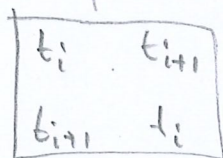 t_i t_{i+1}
t_{i+1} t_i